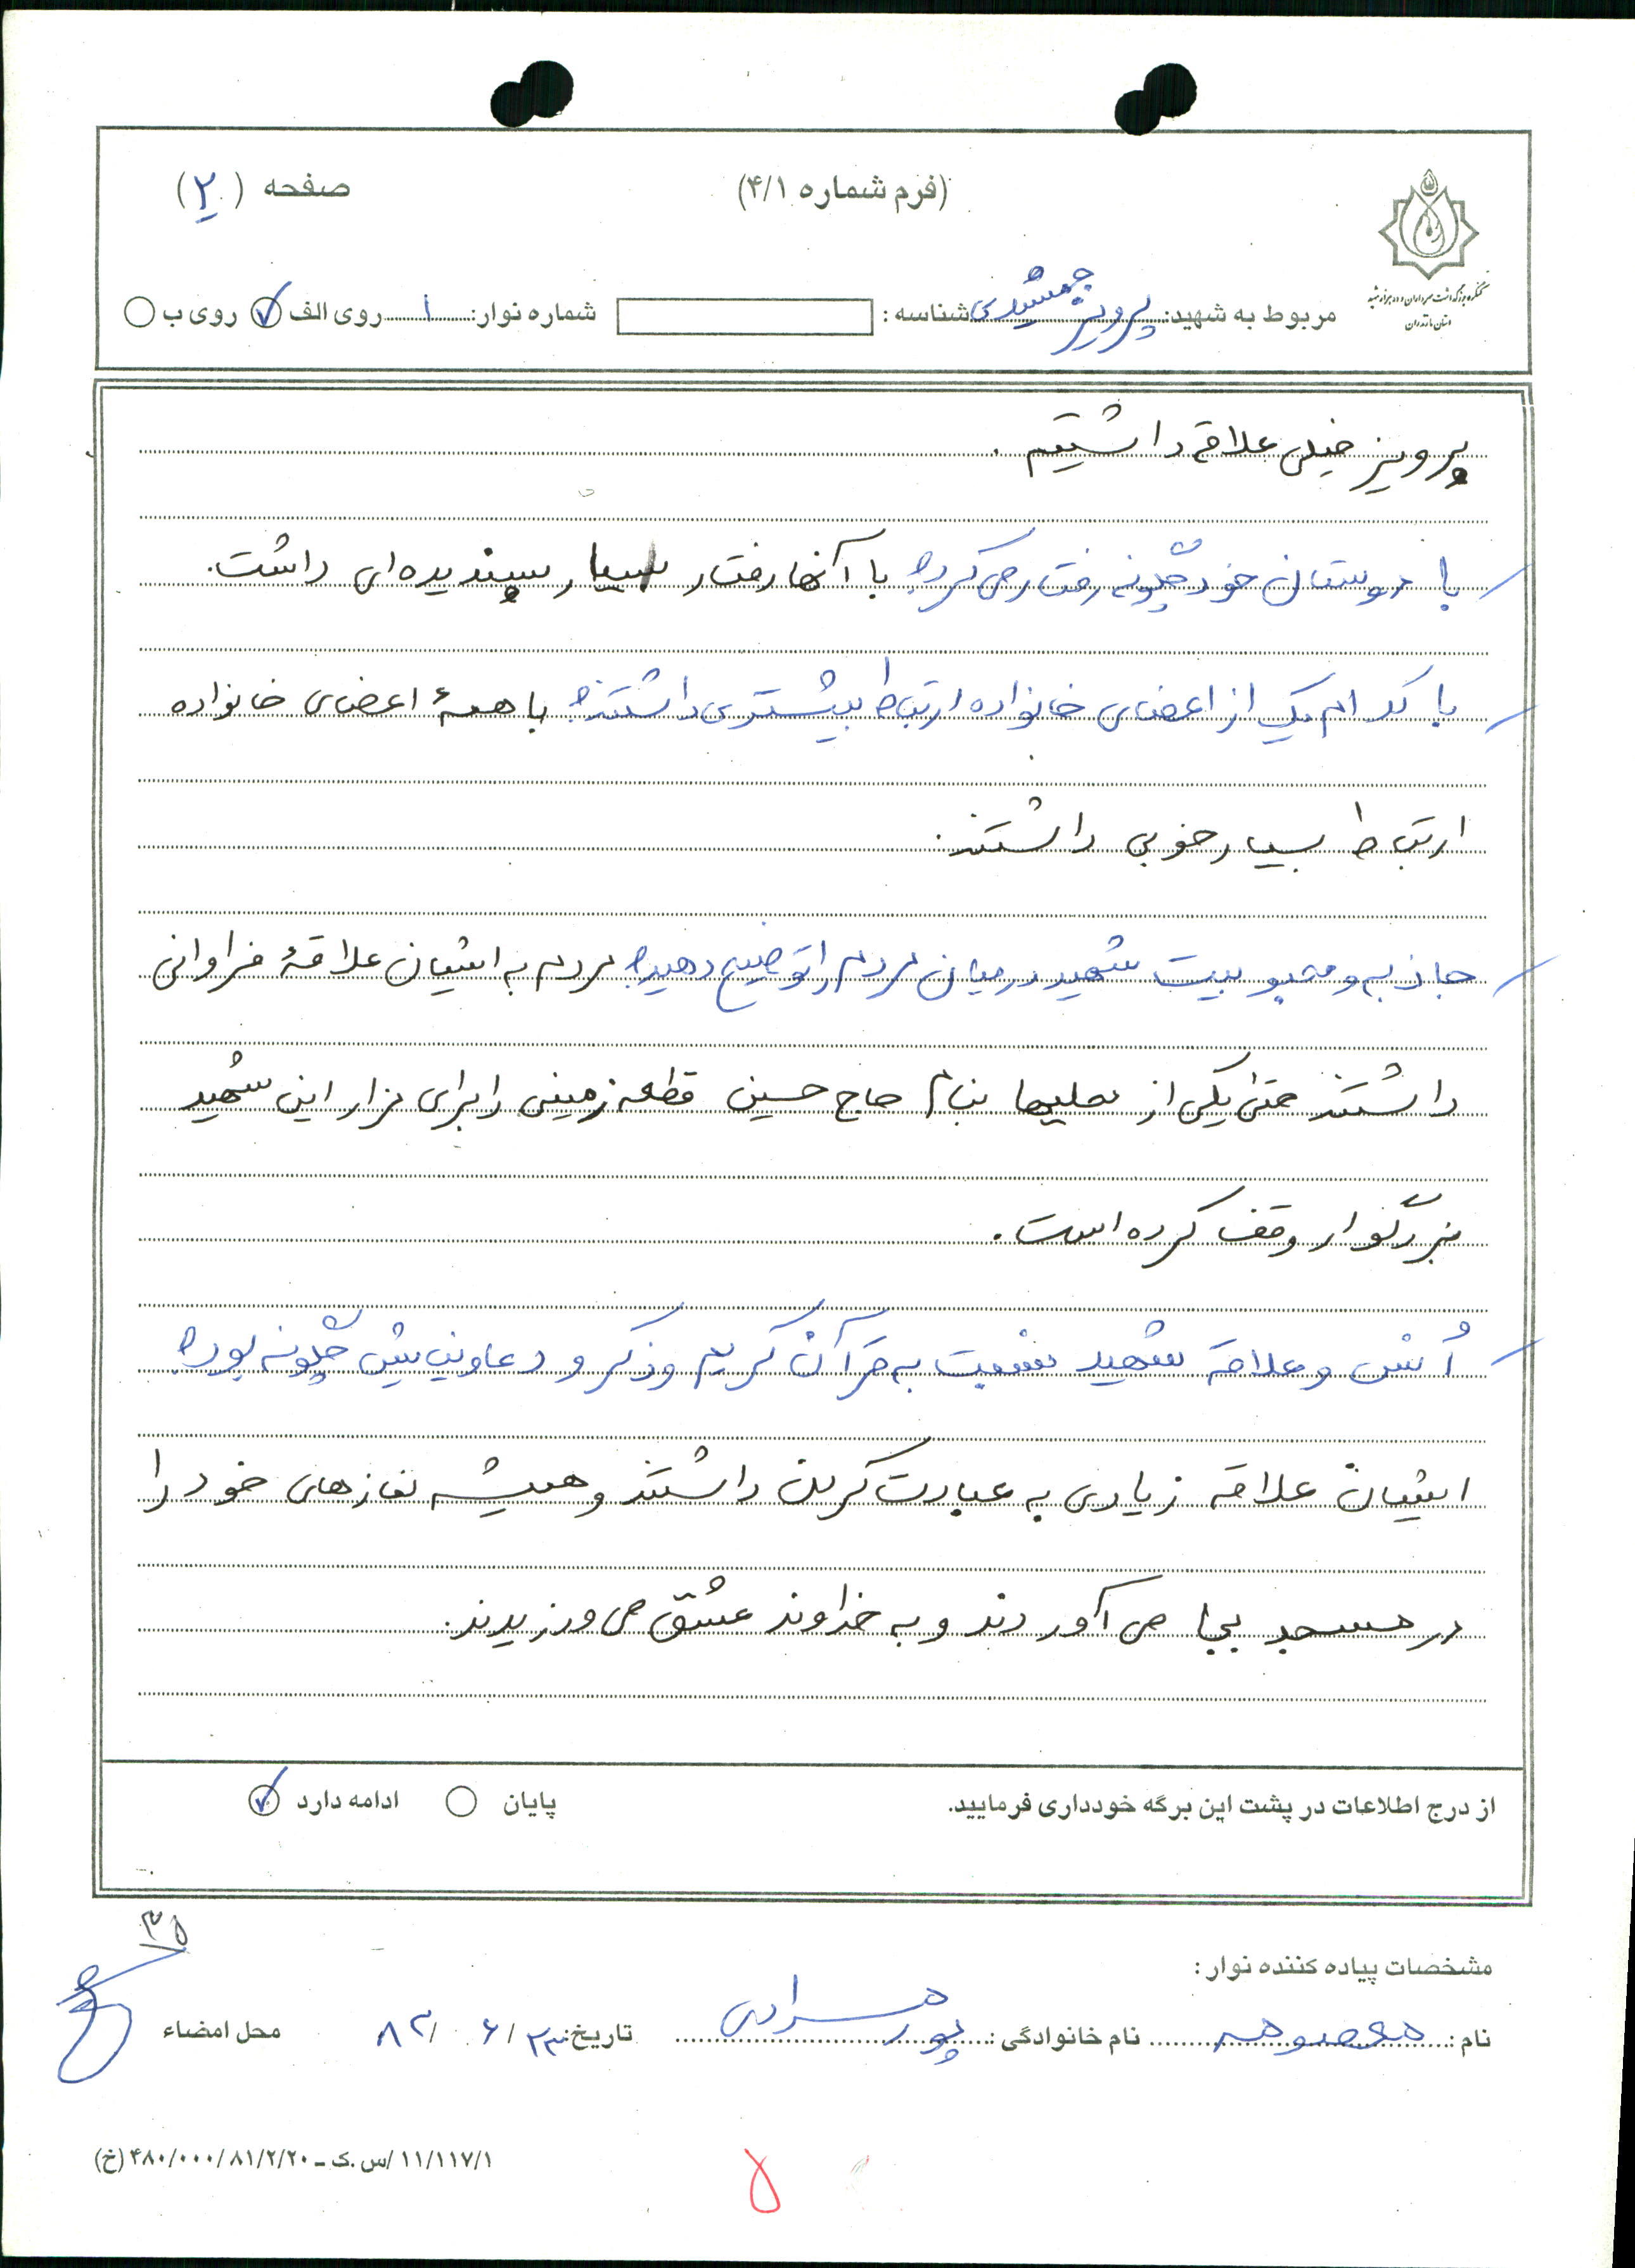 (فرم شماره ۴/۱)
صفحه (۲)
کنگره بزرگداشت سرداران و ده هزار شهید
استان مازندران
مربوط به شهید: پرویز جمشیدی شناسه: شماره نوار: ۱ روی الف روی ب
پرویز خیلی علاقه داشتیم.
با دوستان خود چگونه رفتار می کرد؟ با آنها رفتار بسیار پسندیده ای داشت.
با کدام یک از اعضای خانواده ارتباط بیشتری داشتند؟ با همهٔ اعضای خانواده
ارتباط بسیار خوبی داشتند.
جاذبه و محبوبیت شهید در میان مردم را توضیح دهید؟ مردم به ایشان علاقهٔ فراوانی
داشتند حتی یکی از محلیها بنام حاج حسین قطعه زمینی را برای مزار این شهید
بزرگوار وقف کرده است.
اُنس و علاقه شهید نسبت به قرآن کریم و ذکر و دعا و نیایش چگونه بود؟
ایشان علاقه زیادی به عبادت کردن داشتند و همیشه نمازهای خود را
در مسجد بجا می آوردند و به خداوند عشق می ورزیدند.
از درج اطلاعات در پشت این برگه خودداری فرمایید. پایان ادامه دارد
۳۵
مشخصات پیاده کننده نوار:
نام: معصومه نام خانوادگی: پور تاریخ: ۲۳/۶/۸۲ محل امضاء
۱۱/۱۱۷/۱/س.ک ـ ۴۸۰/۰۰۰/۸۱/۲/۲۰ (خ)
۵